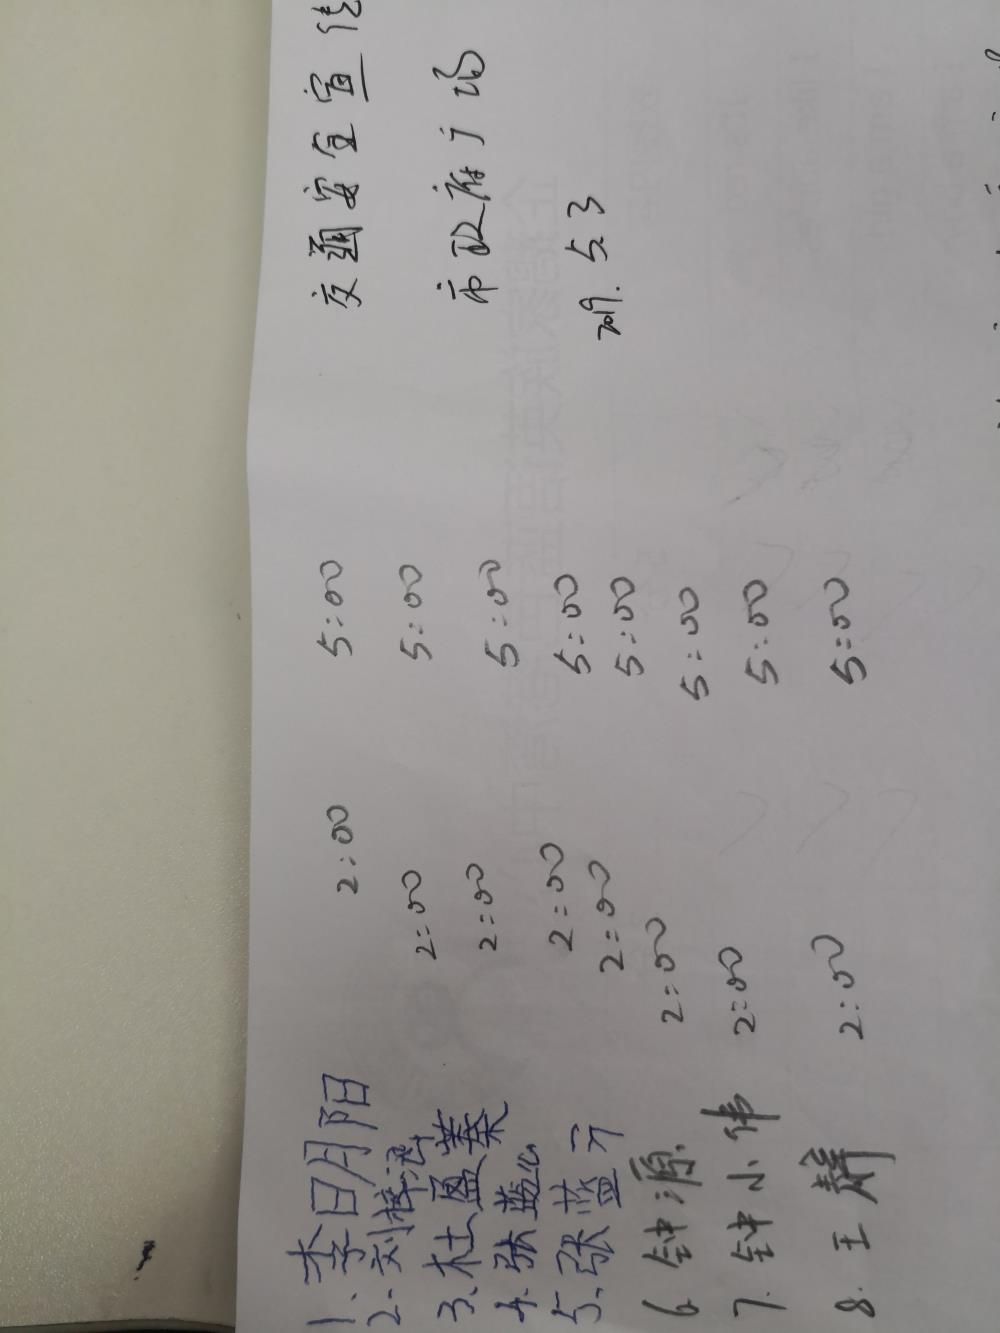 交通安全宣传
市政府广场
2019.5.3
1、李日月阳 2:00 5:00
2、刘梓涵 2:00 5:00
3、杜盈蓁 2:00 5:00
4、张蓝心 2:00 5:00
5、张蓝予 2:00 5:00
6、钟源 2:00 5:00
7、钟小伟 2:00 5:00
8、王静 2:00 5:00